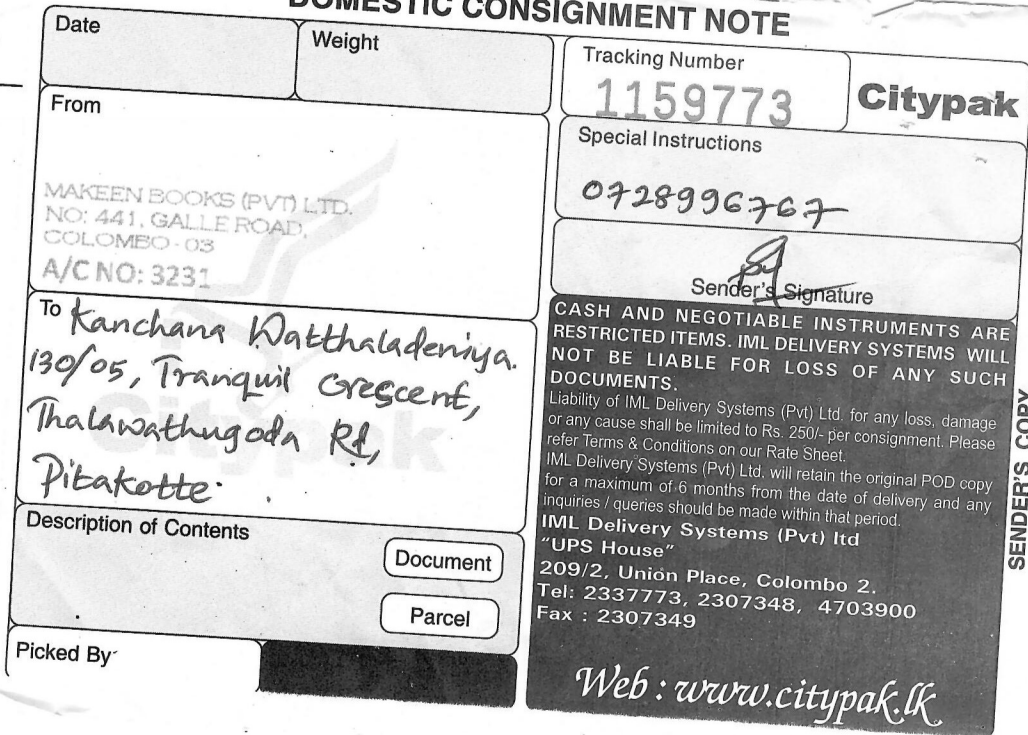 DOMESTIC CONSIGNMENT NOTE
Date
Weight
Tracking Number
1159773
Citypak
From
MAKEEN BOOKS (PVT) LTD.
NO: 441, GALLE ROAD,
COLOMBO - 03
A/C NO: 3231
Special Instructions
0728996767
Sender's Signature
To Kanchana Watthaladeniya.
130/05, Tranquil Crescent,
Thalawathugoda Rd,
Pitakotte.
Citypak
Description of Contents
Document
Parcel
Picked By
CASH AND NEGOTIABLE INSTRUMENTS ARE
RESTRICTED ITEMS. IML DELIVERY SYSTEMS WILL
NOT BE LIABLE FOR LOSS OF ANY SUCH
DOCUMENTS.
Liability of IML Delivery Systems (Pvt) Ltd. for any loss, damage
or any cause shall be limited to Rs. 250/- per consignment. Please
refer Terms & Conditions on our Rate Sheet.
IML Delivery Systems (Pvt) Ltd. will retain the original POD copy
for a maximum of 6 months from the date of delivery and any
inquiries / queries should be made within that period.
IML Delivery Systems (Pvt) ltd
"UPS House"
209/2, Union Place, Colombo 2.
Tel: 2337773, 2307348, 4703900
Fax : 2307349
Web : www.citypak.lk
SENDER'S COPY